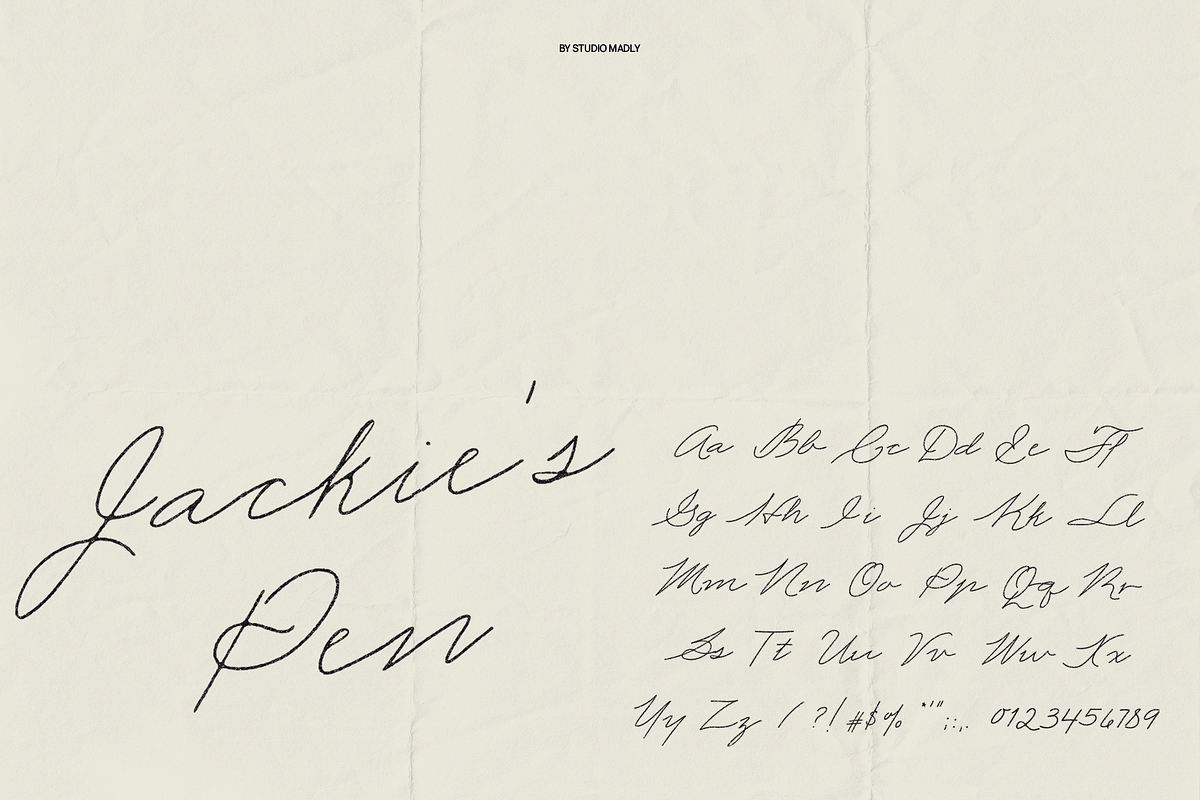 BY STUDIO MADLY
Jackie's
Pen
Aa Bb Cc Dd Ee Ff
Gg Hh Ii Jj Kk Ll
Mm Nn Oo Pp Qq Rr
Ss Tt Uu Vv Ww Xx
Yy Zz / ?! #$% *'" ;:,. 0123456789